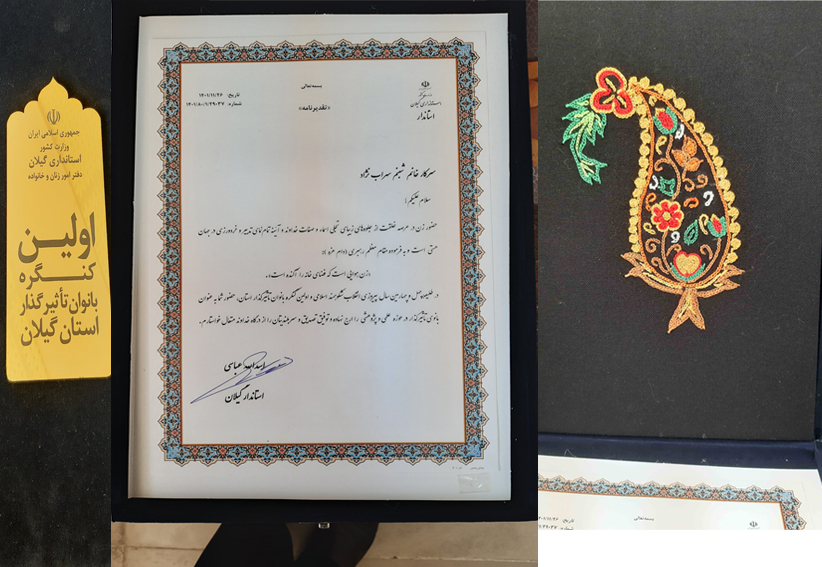 جمهوری اسلامی ایران
وزارت کشور
استانداری گیلان
دفتر امور زنان و خانواده
اولین
کنگره
بانوان تأثیرگذار
استان گیلان
بسمه‌تعالی
وزارت کشور
استانداری گیلان
استاندار
تاریخ: ۱۴۰۱/۱۱/۲۶
شماره: ۱۴۰۱/۸۰/۱/۲۹۰۳۷
«تقدیرنامه»
سرکار خانم شبنم سهراب نژاد
سلام علیکم؛
حضور زن در عرصه خلقت از جلوه‌های زیبای تجلی اسماء و صفات خداوند و آیینه تمام نمای تدبیر و خردورزی در جهان
هستی است و به فرموده مقام معظم رهبری (دام عزه):
«زن هوایی است که فضای خانه را آکنده است».
در طلیعه چهل و چهارمین سال پیروزی انقلاب شکوهمند اسلامی و اولین کنگره بانوان تأثیرگذار استان، حضور شما به عنوان
بانوی تأثیرگذار در حوزه علمی و پژوهشی را ارج نهاده و توفیق تصدیق و سربلندیتان را از درگاه خداوند متعال خواستارم.
اسداله عباسی
استاندار گیلان
بسمه‌تعالی
تاریخ